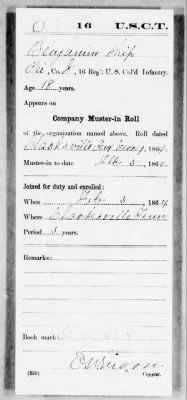 16 U.S.C.T.
Benjamin Ship
Pvt, Co. I, 16 Reg't U. S. Col'd Infantry.
Age 18 years.
Appears on
Company Muster-in Roll
of the organization named above. Roll dated
Clarksville Tenn, 1864.
Muster-in to date Feb 3, 186
Joined for duty and enrolled:
When Feb 3, 1864
Where Clarksville Tenn
Period 3 years.
Remarks:
Book mark:
(356) Copyist.